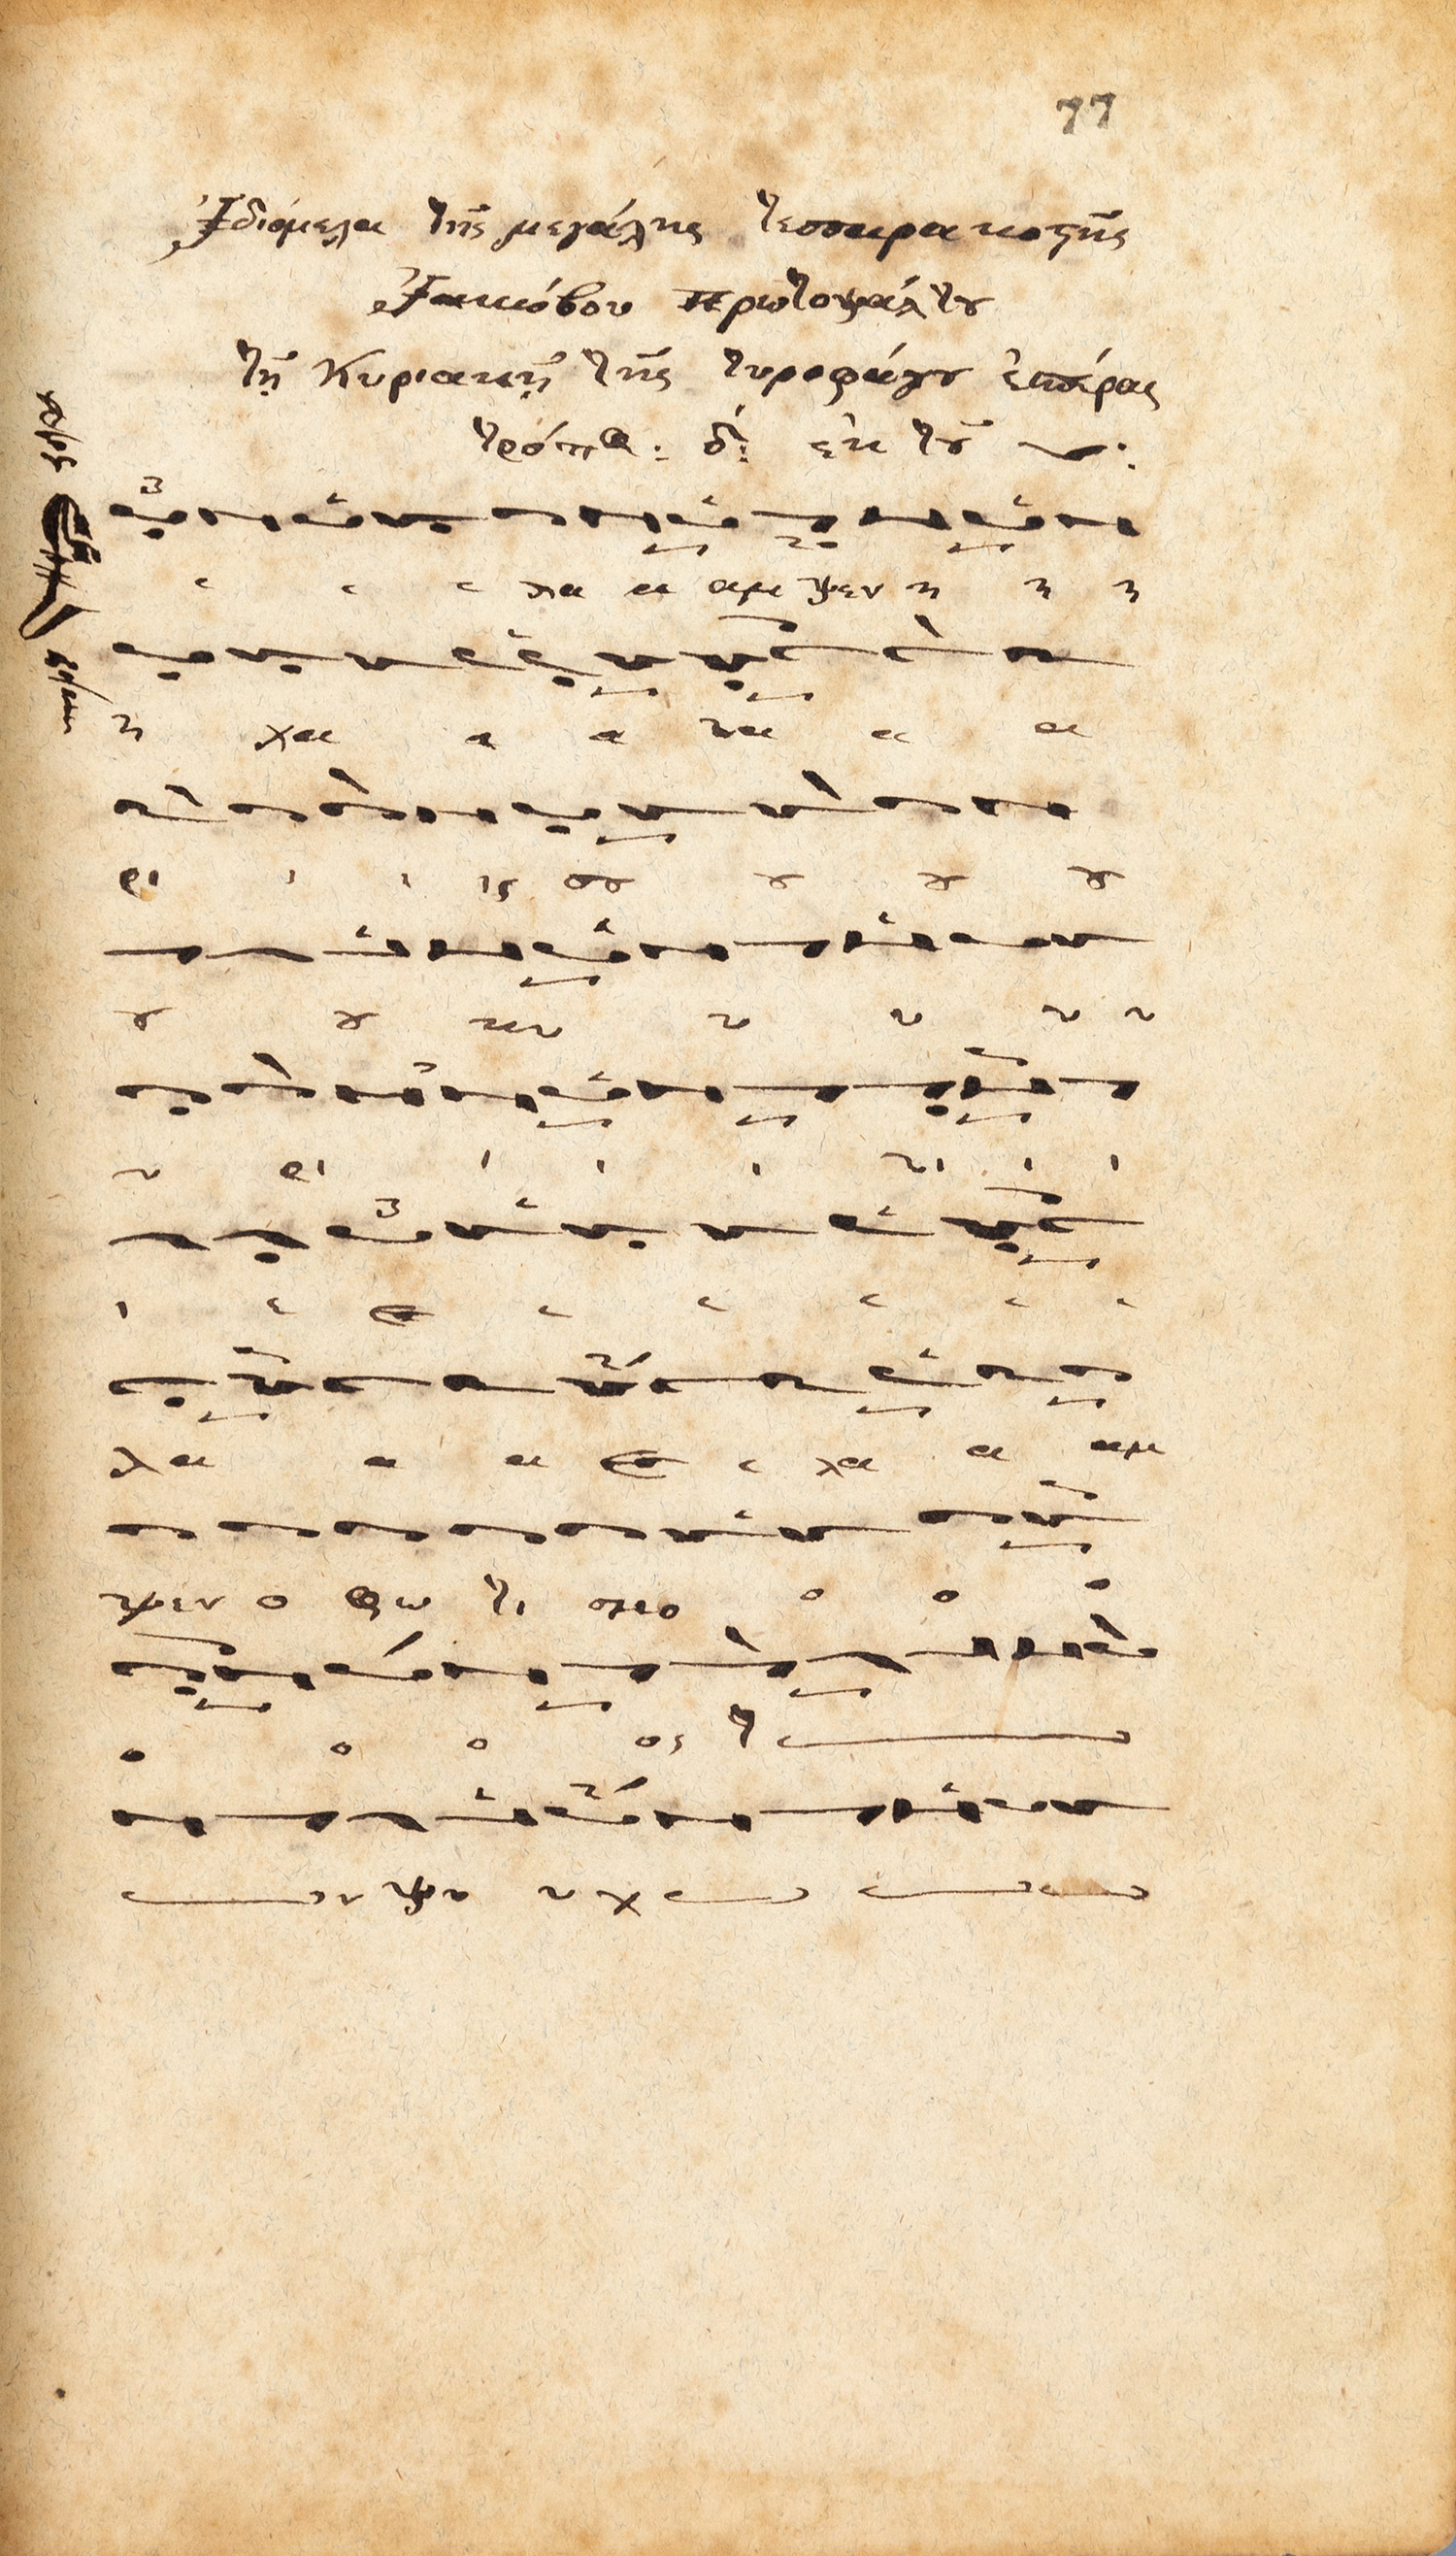 77
Ἰδιόμελα τῆς μεγάλης τεσσαρακοστῆς
Ἰακώβου πρωτοψάλτου
τῇ Κυριακῇ τῆς τυροφάγου ἑσπέρας
δ: ἐκ τοῦ
ε ε ε λα α αμ ψεν η η η
η χα α α α α
ρι ι ι ις σου ου ου ου
ου ου κυ υ υ υ υ
υ ρι ι ι ι ι ι
ι ε ε ε ε ε ε ε
λα α α ε ε λα α αμ
ψεν ο φω τι σμο ο ο ο
ο ο ο ος τ
ν ψυ υ χ